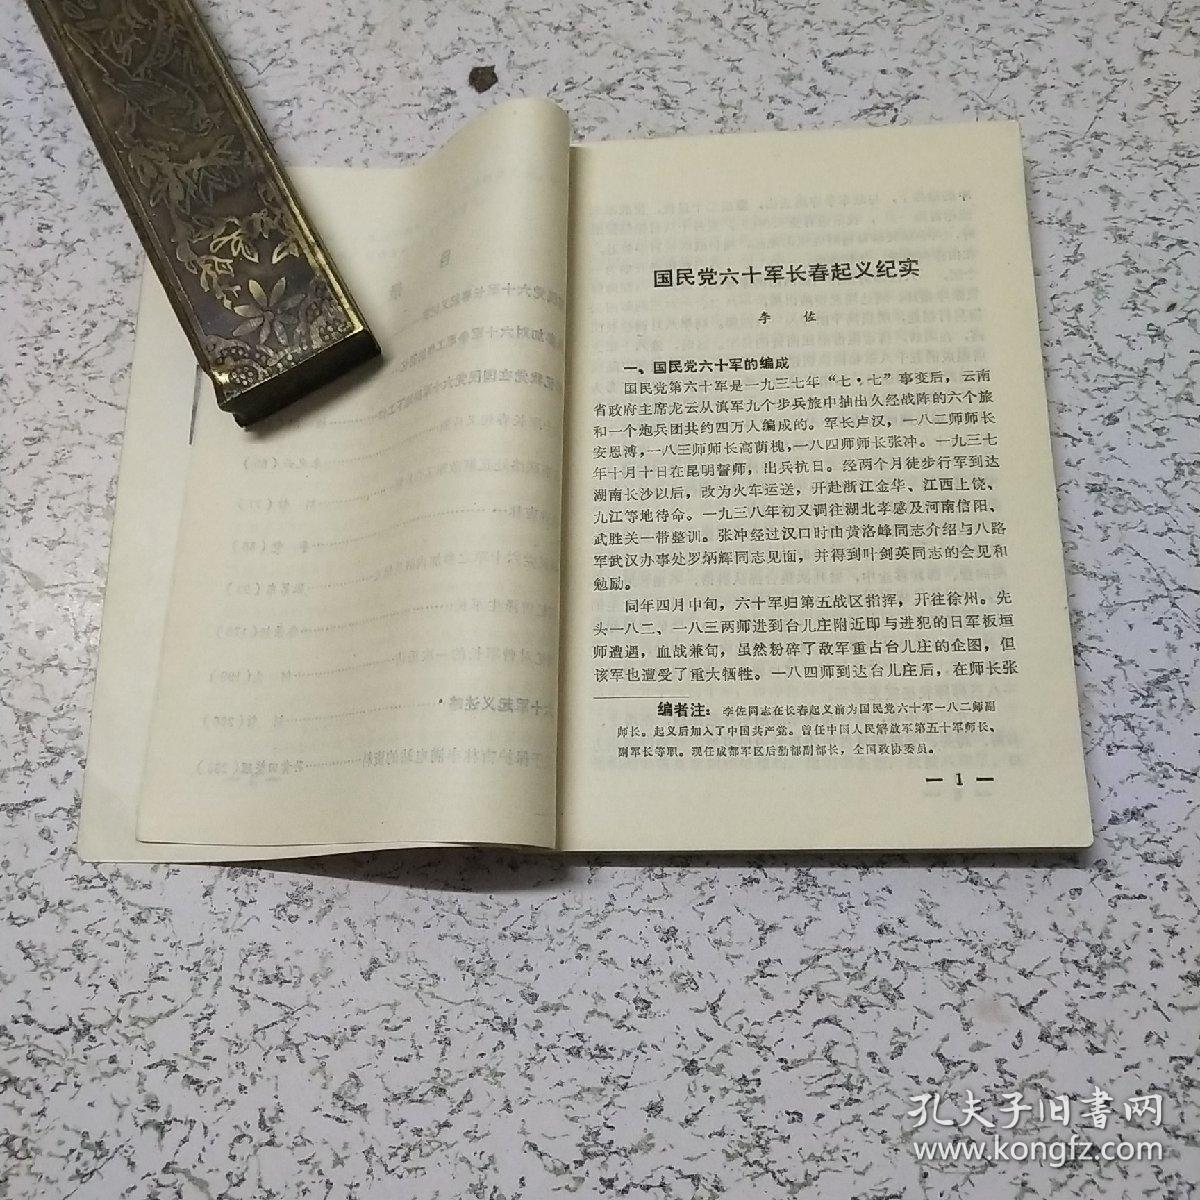 国民党六十军长春起义纪实
李 佐
一、国民党六十军的编成
国民党第六十军是一九三七年“七·七”事变后，云南
省政府主席尤云从滇军九个步兵旅中抽出久经战阵的六个旅
和一个炮兵团共约四万人编成的。军长卢汉，一八二师师长
安恩溥，一八三师师长高荫槐，一八四师师长张冲。一九三七
年十月十日在昆明誓师，出兵抗日。经两个月徒步行军到达
湖南长沙以后，改为火车运送，开赴浙江金华、江西上饶、
九江等地待命。一九三八年初又调往湖北孝感及河南信阳、
武胜关一带整训。张冲经过汉口时由黄洛峰同志介绍与八路
军武汉办事处罗炳辉同志见面，并得到叶剑英同志的会见和
勉励。
同年四月中旬，六十军归第五战区指挥，开往徐州。先
头一八二、一八三两师进到台儿庄附近即与进犯的日军板垣
师遭遇，血战兼旬，虽然粉碎了敌军重占台儿庄的企图，但
该军也遭受了重大牺牲。一八四师到达台儿庄后，在师长张
编者注：李佐同志在长春起义前为国民党六十军一八二师副
师长。起义后加入了中国共产党。曾任中国人民解放军第五十军师长、
副军长等职。现任成都军区后勤部副部长，全国政协委员。
— 1 —
孔夫子旧书网
www.kongfz.com